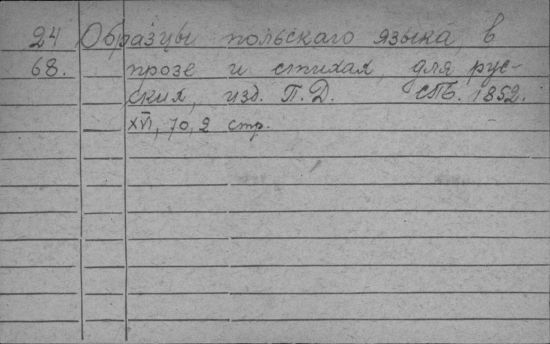 24 Образцы польскаго языка, в
68. прозе и стихах, для рус-
ских, изд. П. Д. СПБ. 1852.
XVI, 70, 2 стр.